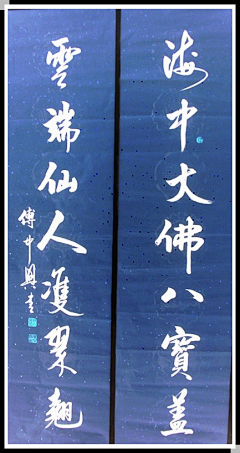 海中大佛八寶蓋
雲端仙人雙翠翹
傅中興書